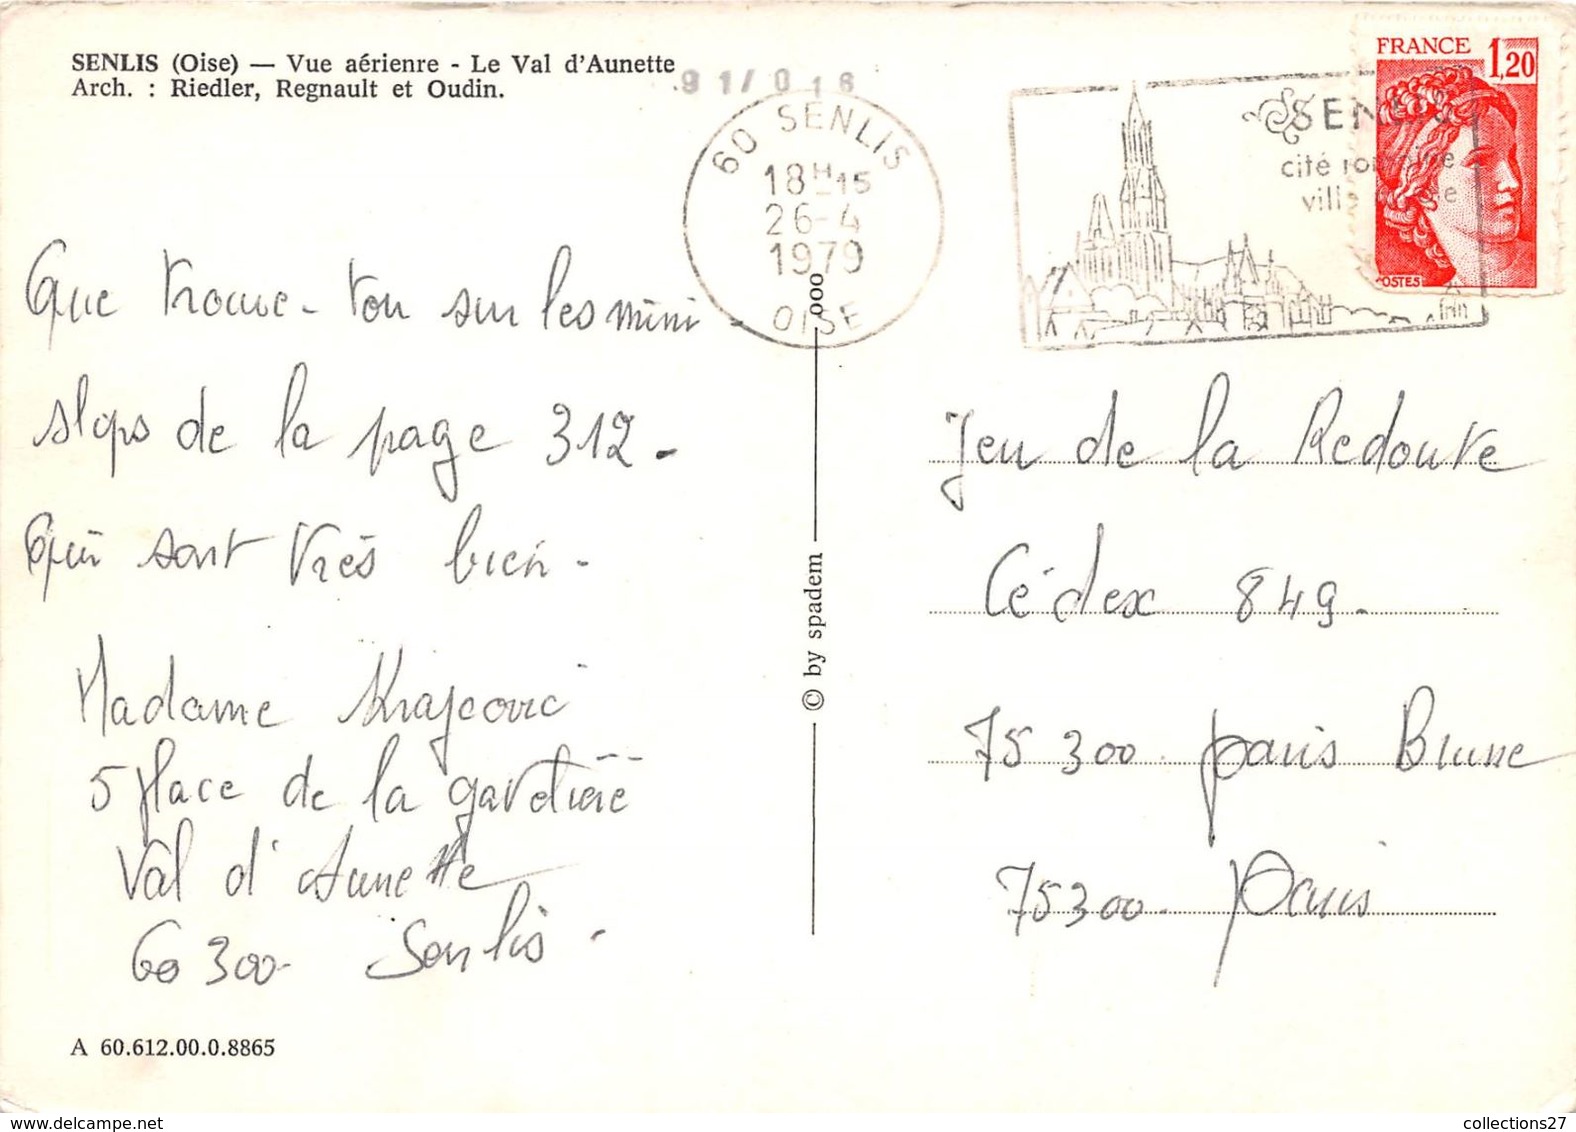 SENLIS (Oise) — Vue aérienre - Le Val d'Aunette
Arch. : Riedler, Regnault et Oudin.
91/016
60 SENLIS
18H15
26-4
1979
OISE
SENLIS
cité romaine
ville
FRANCE 1,20
POSTES
Que trouve-ton sur les mini-
slips de la page 312.
Qui sont très bien.
Madame Krajcovic
5 place de la gavetière
Val d'Aunette
60300 Senlis.
© by spadem
000
Jeu de la Redoute
Cédex 849.
75300 paris Brune
75300. paris
A 60.612.00.0.8865
collections27